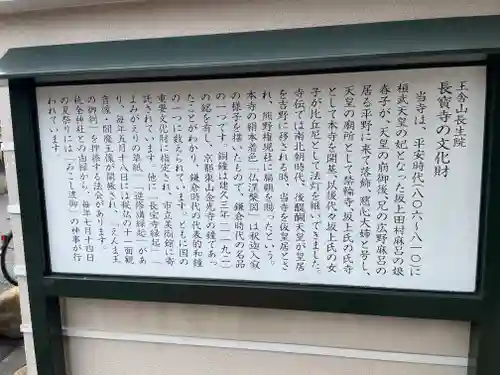 王舎山長生院
長寳寺の文化財
当寺は、平安時代(八〇六〜八一〇)に
桓武天皇の妃となった坂上田村麻呂の娘
春子が、天皇の崩御後、兄の広野麻呂の
居る平野に来て落飾、慈心大姉と号し、
天皇の廟所として修楽寺、坂上氏の氏寺
として本寺を開基、以後代々坂上氏の女
子が比丘尼として法灯を継いできました。
寺伝では南北朝時代、後醍醐天皇が皇居
を吉野に移される頃、当寺を仮皇居とさ
れ、熊野権現社に扁額を賜ったという。
本寺の絹本着色「仏涅槃図」は釈迦入寂
の様子を描いたもので、鎌倉時代の名品
の一つです。銅鐘は建久三年(一一九二)
の銘を有し、京都東山金光寺の鐘であっ
たことがわかり、鎌倉時代の代表的和鐘
の一つに数えられています。ともに国の
重要文化財に指定され、市立美術館に寄
託されています。他に「長宝寺縁起」
「よみがえりの草紙」「遊楽講縁起」があ
り、毎年五月十八日には秘仏の十一面観
音様、閻魔王像が開帳され、「えんま王
の御判」を押捺する法会があります。
杭全神社との由縁が深く、毎年七月十四日
の夏祭りには「みこし洗」の神事が行
われています。